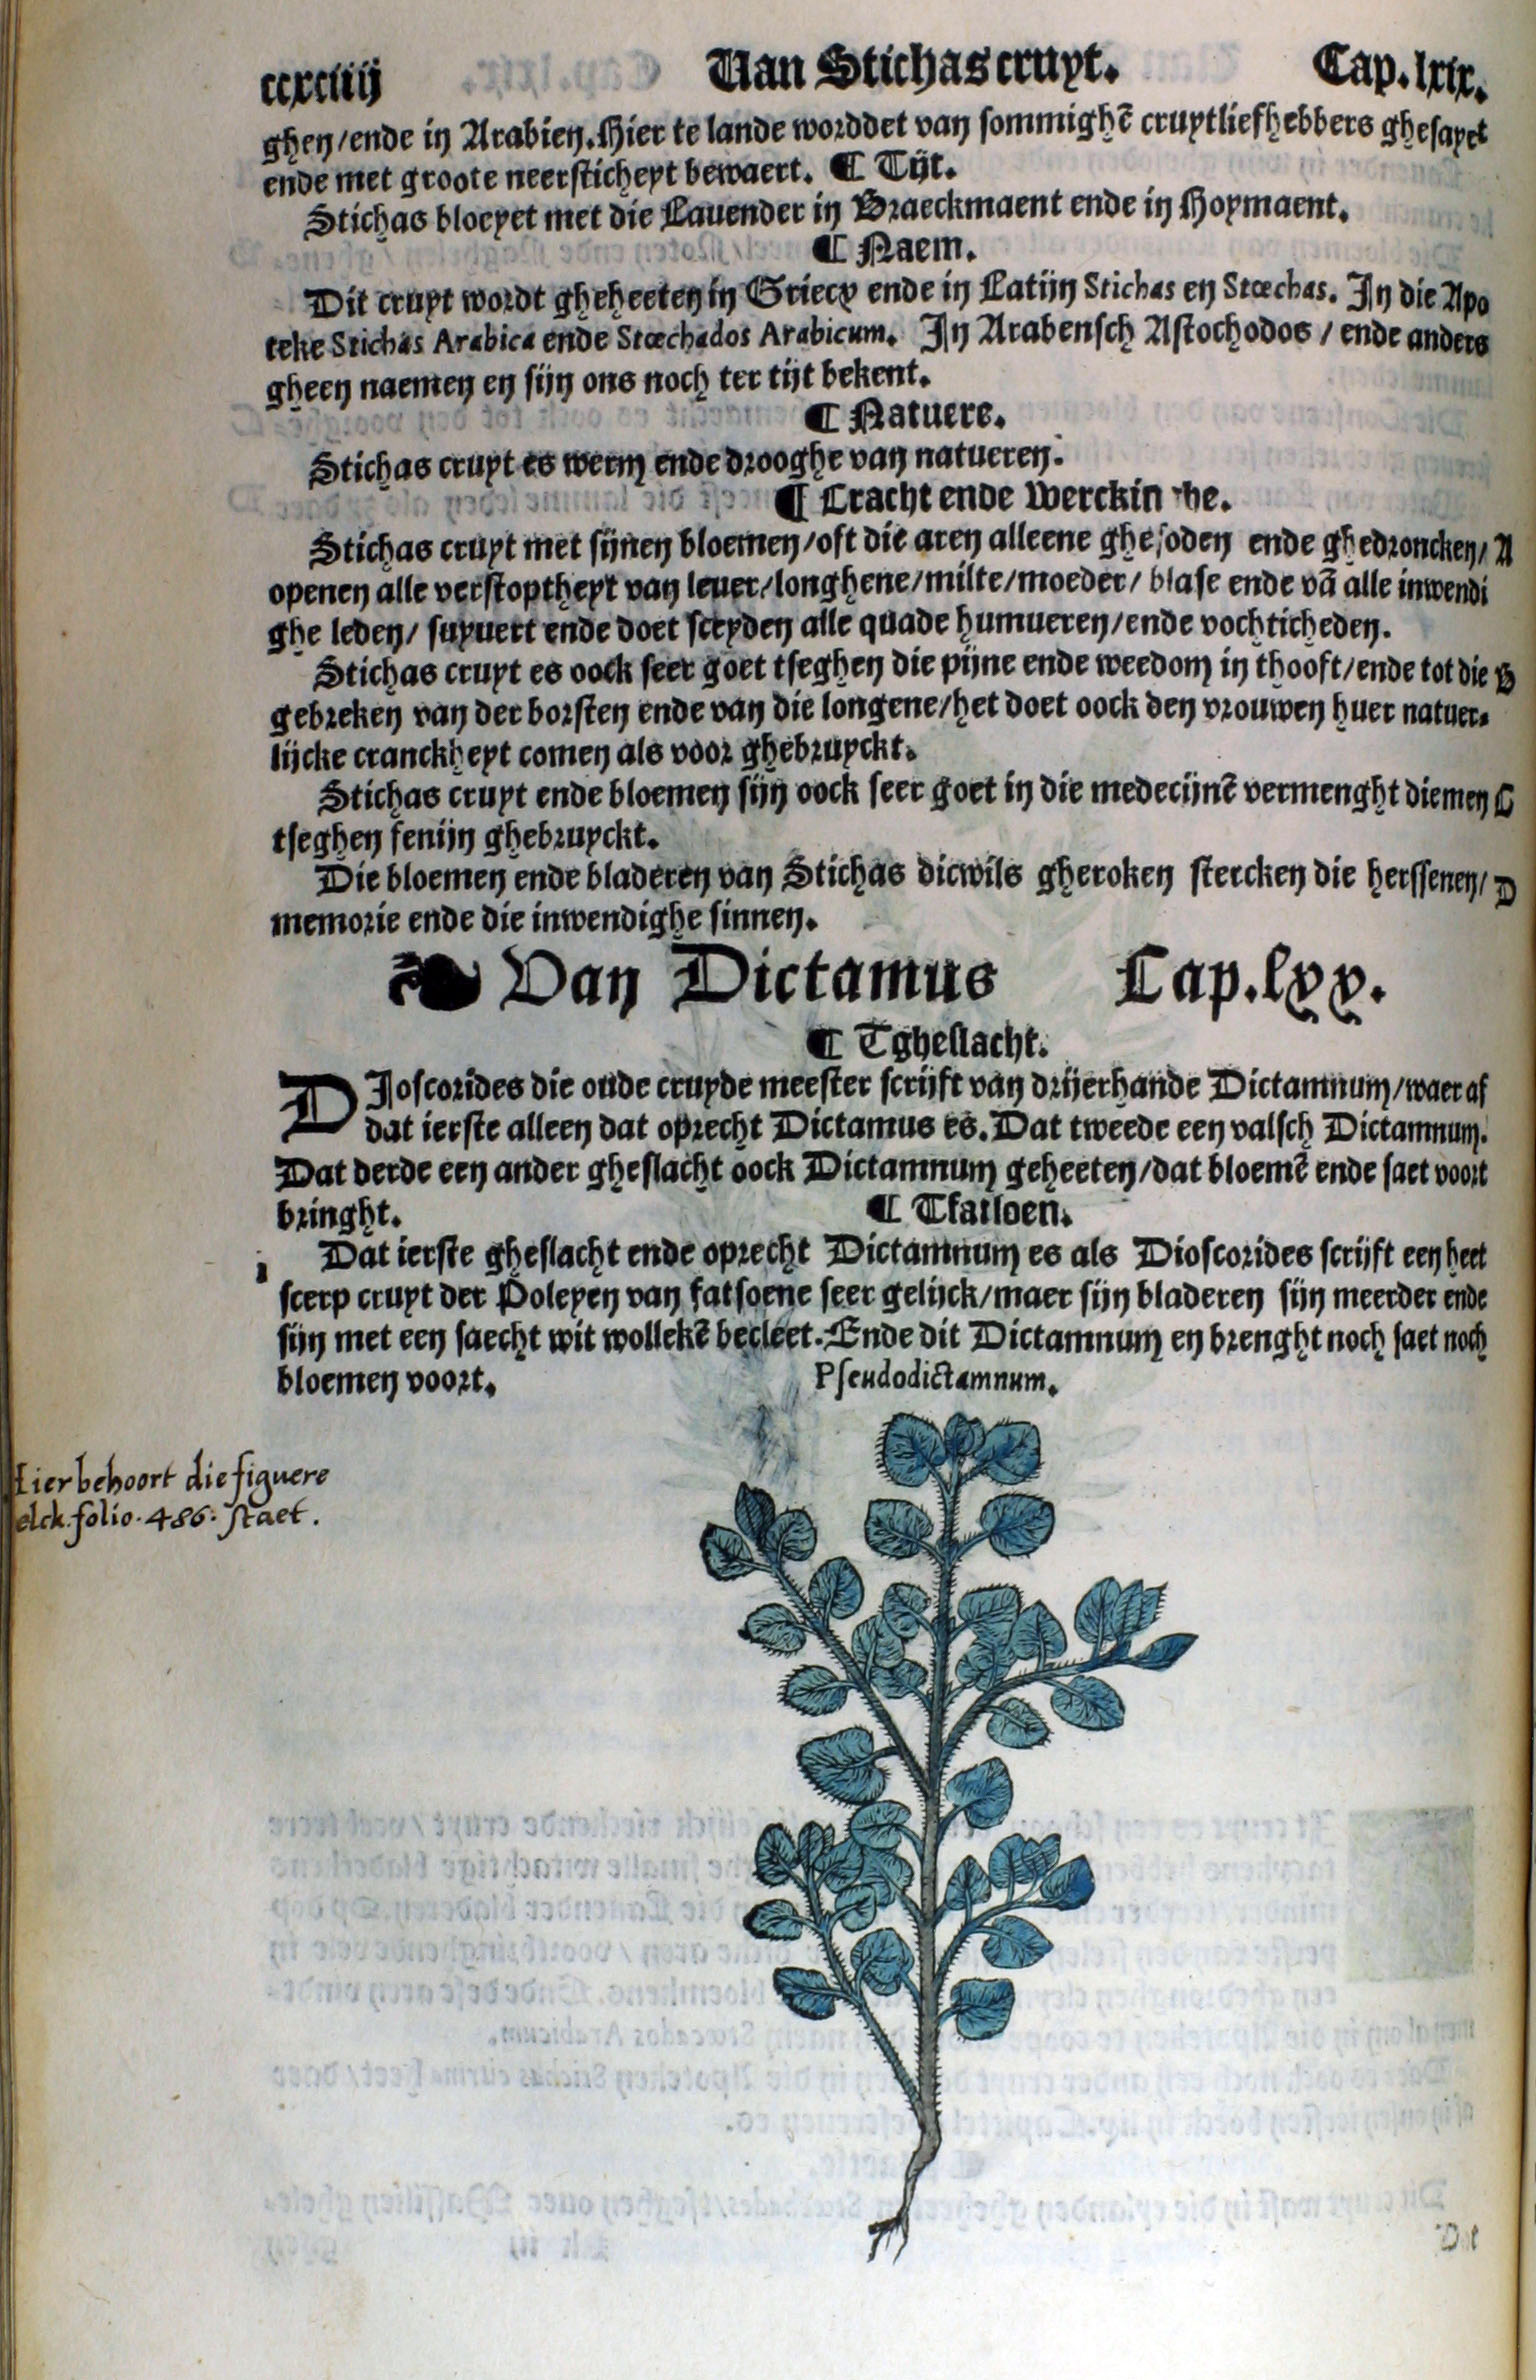 ccxciiij Van Stichas cruyt. Cap. lxix.
ghen/ende in Arabien. Hier te lande worddet van sommighē cruytliefhebbers ghesayet
ende met groote neersticheyt bewaert. ¶ Tijt.
Stichas bloeyet met die Lauender in Braeckmaent ende in Hoymaent.
¶ Naem.
Dit cruyt wordt gheheeten in Griecx ende in Latijn Stichas en Stœchas. In die Apo
teke Stichas Arabica ende Stœchados Arabicum. In Arabensch Astochodos / ende anders
gheen naemen en sijn ons noch ter tijt bekent.
¶ Natuere.
Stichas cruyt es werm ende drooghe van natueren.
¶ Cracht ende Werckin ghe.
Stichas cruyt met sijnen bloemen/oft die aren alleene ghesoden ende ghedroncken/ A
openen alle verstoptheyt van leuer/longhene/milte/moeder/ blase ende vā alle inwendi
ghe leden/ suyuert ende doet sceyden alle quade humueren/ende vochticheden.
Stichas cruyt es oock seer goet tseghen die pijne ende weedom in thooft/ende tot die B
gebreken van der borsten ende van die longene/het doet oock den vrouwen huer natuer-
lijcke cranckheyt comen als voor ghebruyckt.
Stichas cruyt ende bloemen sijn oock seer goet in die medecijnē vermenght diemen C
tseghen fenijn ghebruyckt.
Die bloemen ende bladeren van Stichas dicwils gheroken stercken die herssenen/ D
memorie ende die inwendighe sinnen.
❧ Van Dictamus Cap. lxx.
¶ Tgheslacht.
DIoscorides die oude cruyde meester scrijft van drijerhande Dictamnum/waer af
dat ierste alleen dat oprecht Dictamus es. Dat tweede een valsch Dictamnum.
Dat derde een ander gheslacht oock Dictamnum geheeten/dat bloemē ende saet voort
bringht. ¶ Tfatsoen.
i Dat ierste gheslacht ende oprecht Dictamnum es als Dioscorides scrijft een heet
scerp cruyt der Poleyen van fatsoene seer gelijck/maer sijn bladeren sijn meerder ende
sijn met een saecht wit wollekē becleet. Ende dit Dictamnum en brenght noch saet noch
bloemen voort. Pseudodictamnum.
Hier behoort die figuere
welck folio. 486. staet.
Dat